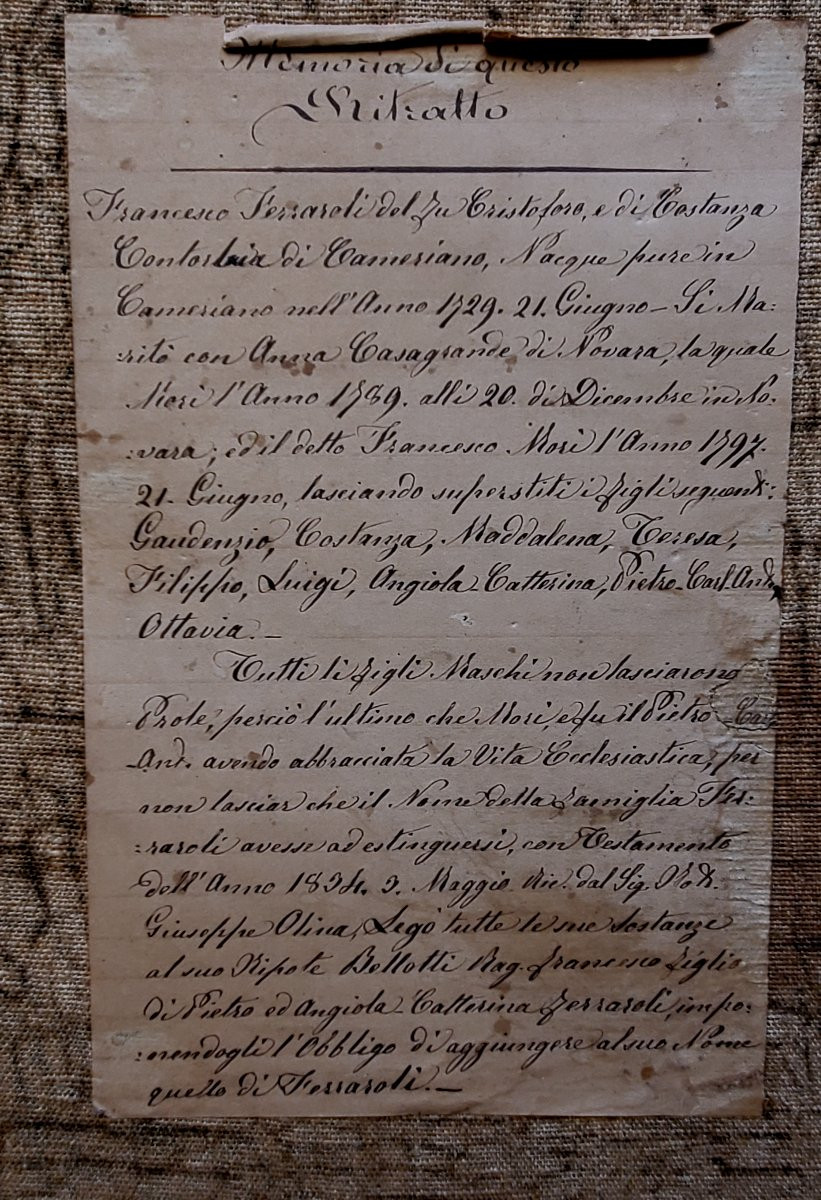 Memoria di questo
Ritratto
Francesco Ferraroli del fu Cristoforo, e di Costanza
Contorbia di Cameriano, Nacque pure in
Cameriano nell'Anno 1729. 21. Giugno - Si Ma:
:ritò con Anna Casagrande di Novara, la quale
Morì l'Anno 1789. alli 20. di Dicembre in No:
:vara; ed il detto Francesco Morì l'Anno 1797.
21. Giugno, lasciando superstiti i figli seguenti:
Gaudenzio, Costanza, Maddalena, Teresa,
Filippo, Luigi, Angiola-Catterina, Pietro-Carl-Ant.,
Ottavia. -
Tutti li figli Maschi non lasciarono
Prole, perciò l'ultimo che Morì, e fu il Pietro
-Ant. avendo abbracciata la Vita Ecclesiastica, per
non lasciar che il Nome della famiglia Fer:
:raroli avesse ad estinguersi, con Testamento
dell'Anno 1834. 3. Maggio Ric. dal Sig. Not.
Giuseppe Olina, Legò tutte le sue sostanze
al suo Nipote Bellotti Rag. Francesco figlio
di Pietro ed Angiola-Catterina Ferraroli, impo:
:nendogli l'Obbligo di aggiungere al suo Nome
quello di Ferraroli. -